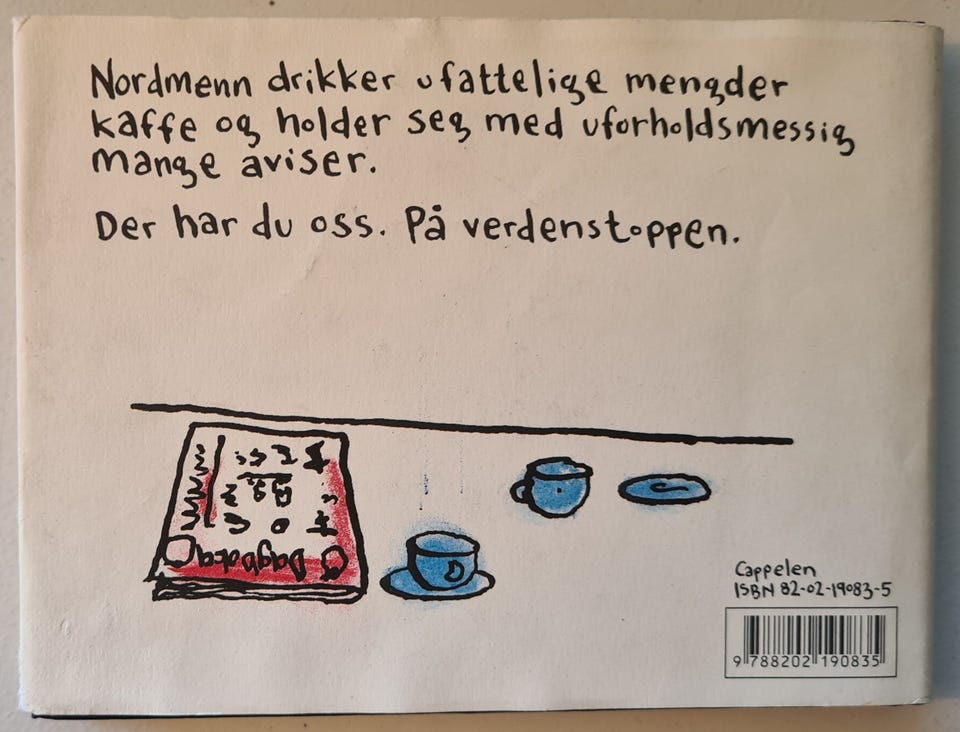 Nordmenn drikker ufattelige mengder
kaffe og holder seg med uforholdsmessig
mange aviser.
Der har du oss. På verdenstoppen.
Cappelen
ISBN 82-02-19083-5
9 788202 190835